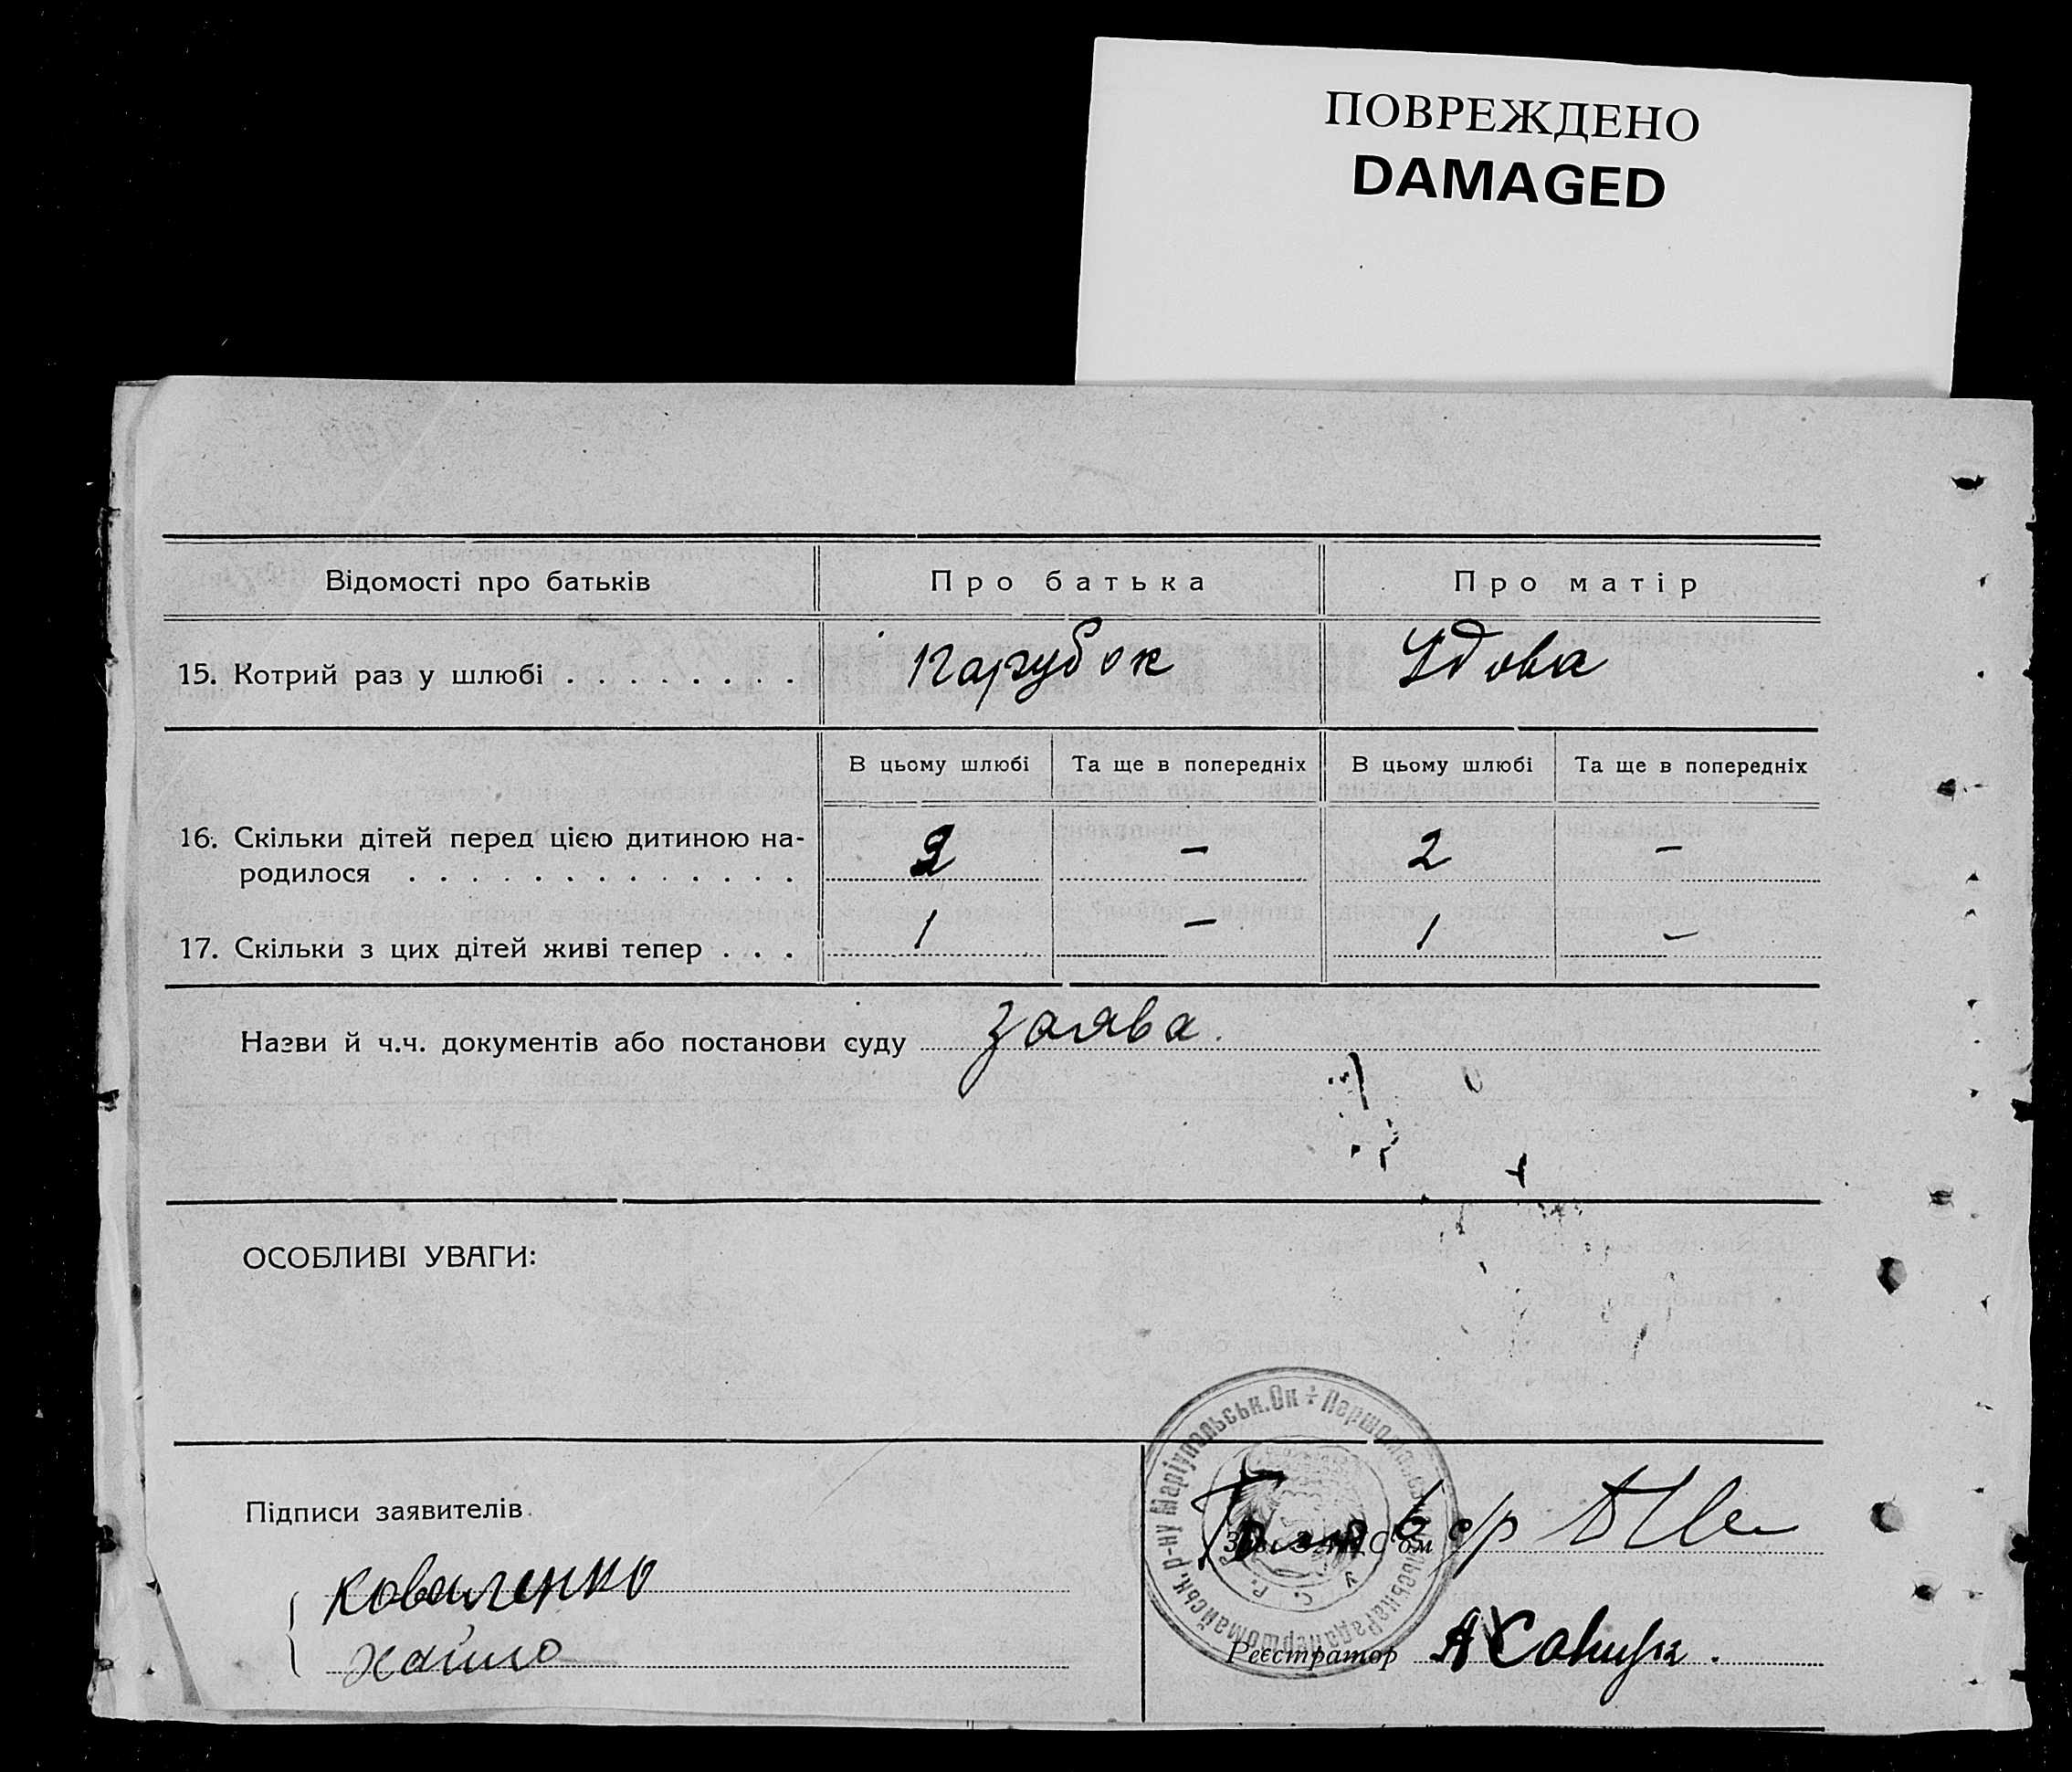 ПОВРЕЖДЕНО
DAMAGED
Відомості про батьків
Про батька
Про матір
15. Котрий раз у шлюбі . . . . . . . .
Парубок
Удова
В цьому шлюбі
Та ще в попередніх
В цьому шлюбі
Та ще в попередніх
16. Скільки дітей перед цією дитиною на-
родилося . . . . . . . . . . . . .
2
—
2
—
17. Скільки з цих дітей живі тепер . . .
1
—
1
—
Назви й ч.ч. документів або постанови суду
заява.
ОСОБЛИВІ УВАГИ:
Маріупольськ. Ок ÷ Першомайська сільська Рада Першомайськ. р-ну
У. С. Р. Р.
Підписи заявителів
Коваленко
Реєстратор